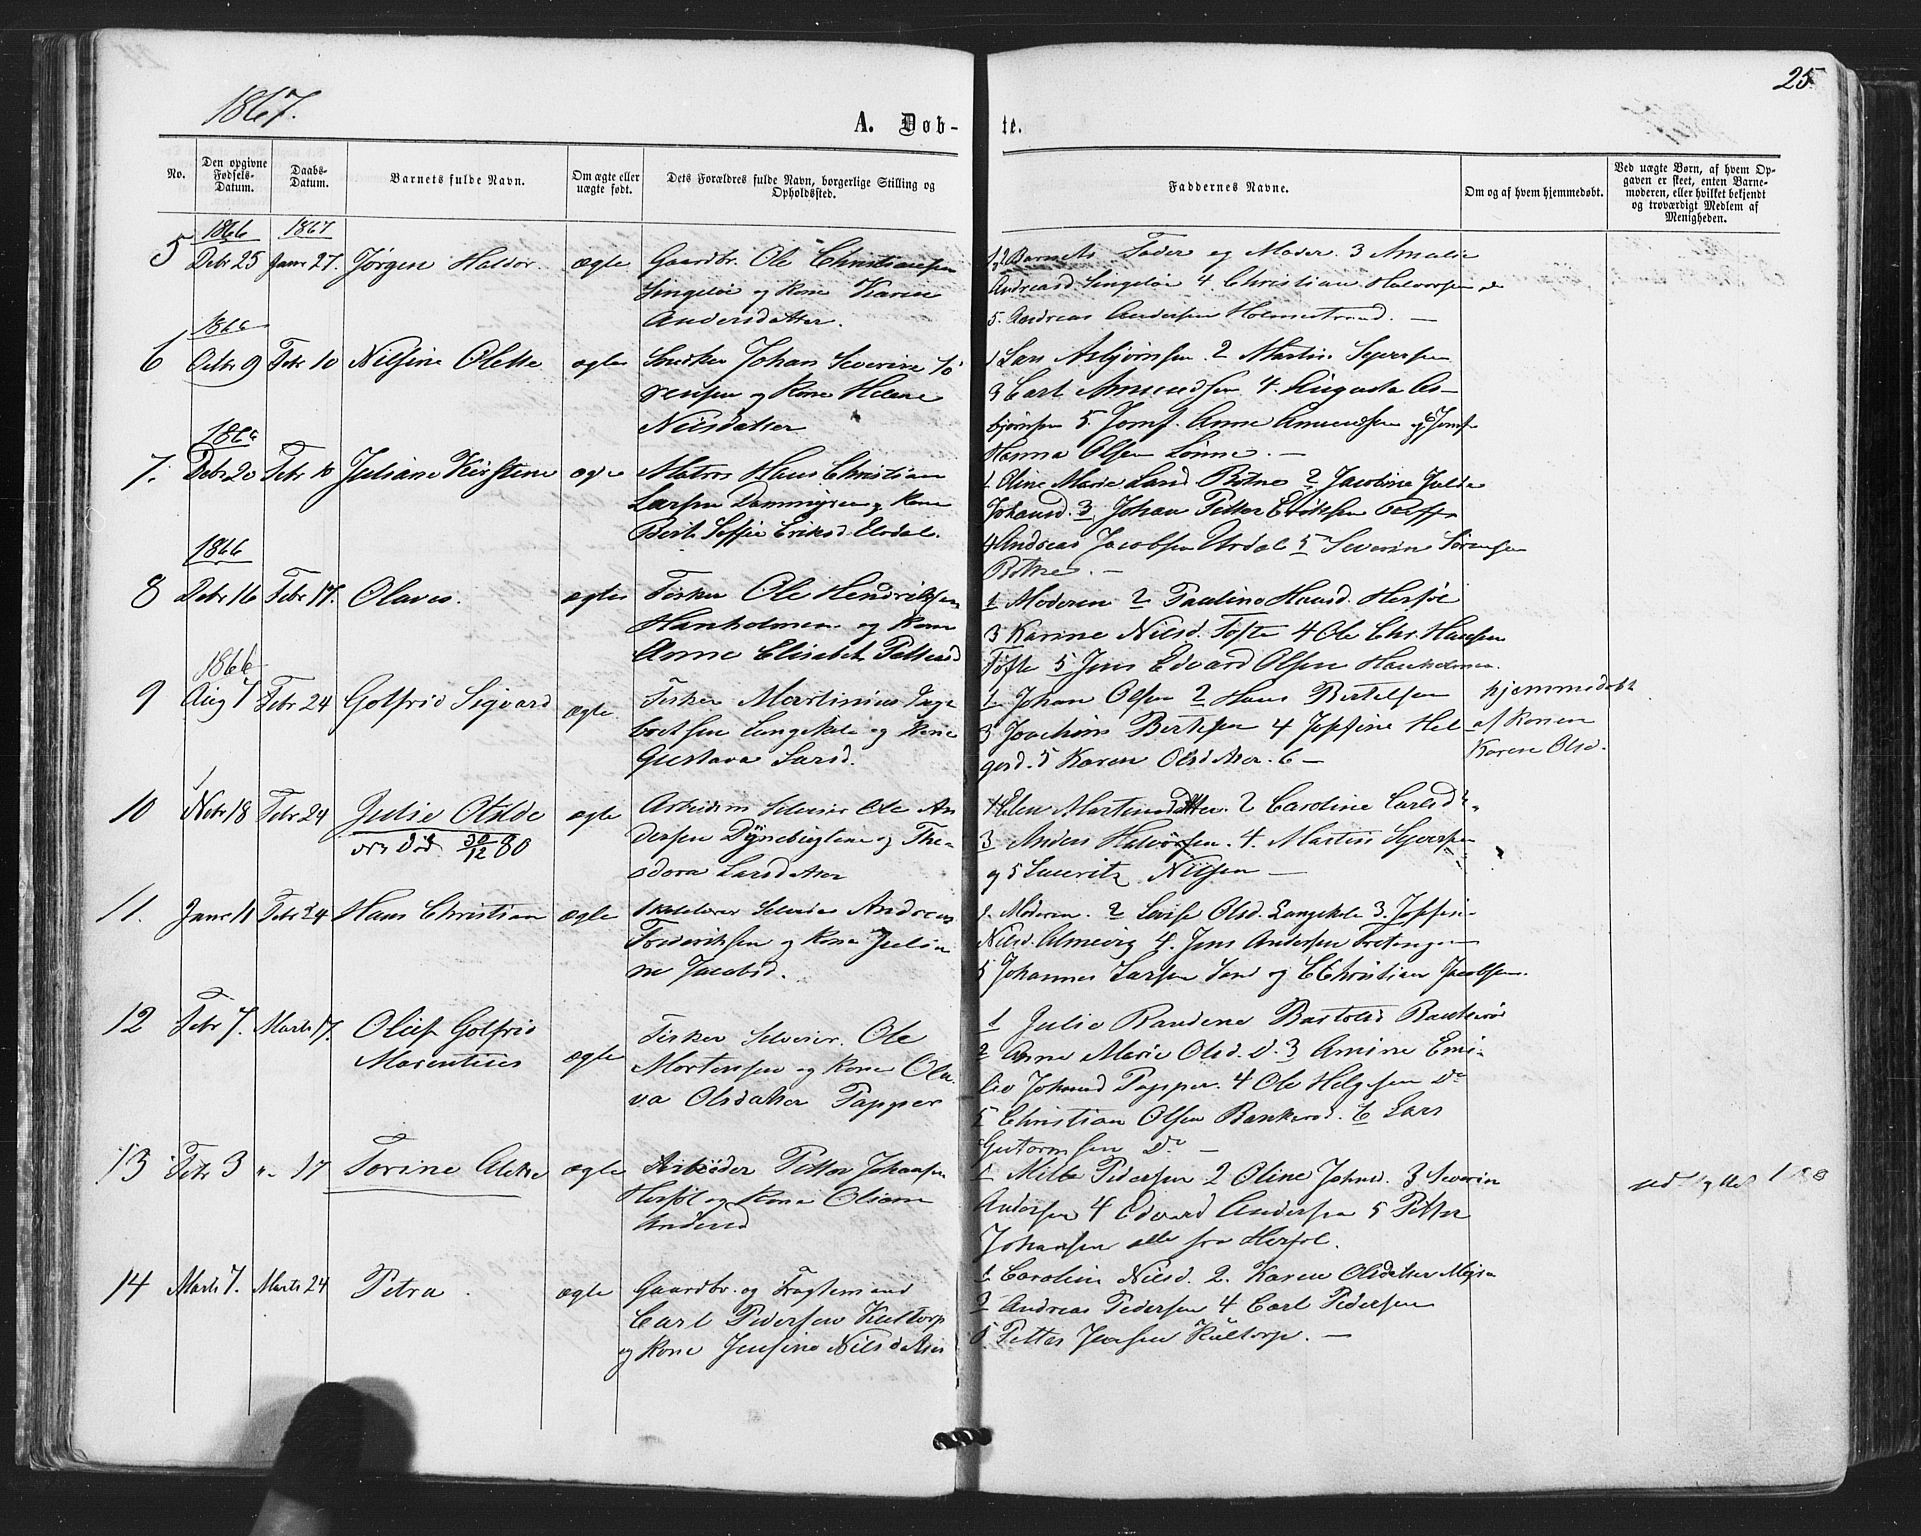 1867.
25
A. Døb-
te.
No.
Den opgivne Fødsels-Datum.
Daabs-Datum.
Barnets fulde Navn.
Om ægte eller uægte født.
Dets Forældres fulde Navn, borgerlige Stilling og Opholdssted.
Faddernes Navne.
Om og af hvem hjemmedøbt.
Ved uægte Børn, af hvem Opgaven er skeet, enten Barnemoderen, eller hvilket bekjendt og troværdigt Medlem af Menigheden.
1866 1867
5 Debr 25 Janr 27. Jørgen Haldor. ægte Gaardbr. Ole Christiansen
Singeløe og Kone Karen
Andersdatter.
1, 2 Barnets Fader og Moder. 3 Amalie
Andreasd Singeløe 4 Christian Halvorsen do
5. Andreas Andersen Holmestrand. —
1866
6 Octbr 9 Febr 10 Nilsine Olette ægte Snedker Johan Severin Sö
rensen og Kone Helene
Nilsdatter
1 Lars Asbjørnsen 2 Martin Syversen
3 Carl Amundsen 4. Augusta As-
bjørnsen 5. Jomf. Anne Amundsen og Jomf.
Hanna Olsen Lønne. —
1866
7. Debr 20 Febr 10 Juliane Kirstine ægte Matros Hans Christian
Larsen Dammyren og Kone
Berte Soffie Eriksd
1 Oline Marie Larsd Botne 2 Jacobine Julie
Johansd. 3 Johan Petter Eriksen
4 Andreas Jacobsen 5 Severin Sørensen
Botne. —
1866
8 Debr 16 Febr 17. Olaves. ægte Fisker Ole Hendriksen
Hankholmen og Kone
Anne Elisabet Pettersd
1 Moderen 2 Pauline Hansd. Herføl
3 Karine Nilsd. Tofte 4 Ole Chr. Hansen
Tofte 5 Jens Edvard Olsen Hankholmen.
1866
9 Aug 7 Febr 24 Gotfrid Sigvard ægte. Fisker Martinius
Langekile og Kone
Gustava Larsd.
1. Johan Olsen 2 Hans Bertelsen
3 Joachim Bertelsen 4 Josefine Hel
gesd. 5 Karen Olsdatter. 6 —
hjemmedøbt
af Konen
Karen Olsd.
10 Nobr 18 Febr 24 Julie Otilde ægte Arbeidsm Selveier Ole An
dersen og The-
odora Larsdatter
30/12 80
1 Elen Martinusdatter. 2 Caroline Carlsd
3 Anders Halvorsen. 4. Martin Syversen
og 5 Lauritz Nilsen —
11. Janr 11 Febr 24 Hans Christian ægte Selveier Andreas
Frederiksen og Kone Julia
ne Jacobsd.
1. Moderen. 2 Lovise Olsd. Langekile 3. Josefine
Nilsd. 4. Jens Andersen
5 Johannes Larsen Sand og 6 Christian Jacobsen.
12 Febr 7. Marts 17. Oluf Gotfrid
Marentius
ægte Fisker Selveier. Ole
Mortensen og Kone Oli
va Olsdatter Papper
1 Julie Randene Bartolsd Bankerød
2 Anne Marie Olsd. do. 3 Amine Emi-
lie Johansd Papper. 4 Ole Helgesen do
5 Christian Olsen Bankerød. 6 Lars
Gutormsen Do —
13 Febr 3 " - 17 Torine Alette ægte Arbeider Petter Johansen
Herføl og Kone Oliane
Andersd
1 Mille Pedersen 2 Oline Johnsd. 3 Severin
Andersen 4 Edvard Andersen 5 Petter
Johansen alle fra Herføl.
14 Marts 7. Marts 24 Petra. ægte Gaardbr. og Fragtemand
Carl Pedersen Kiltorp
og Kone Jensine Nilsdatter
1 Caroline Nilsd. 2. Karen Olsdatter
3 Andreas Pedersen 4 Carl Pedersen
5 Petter Jensen Kiltorp. —